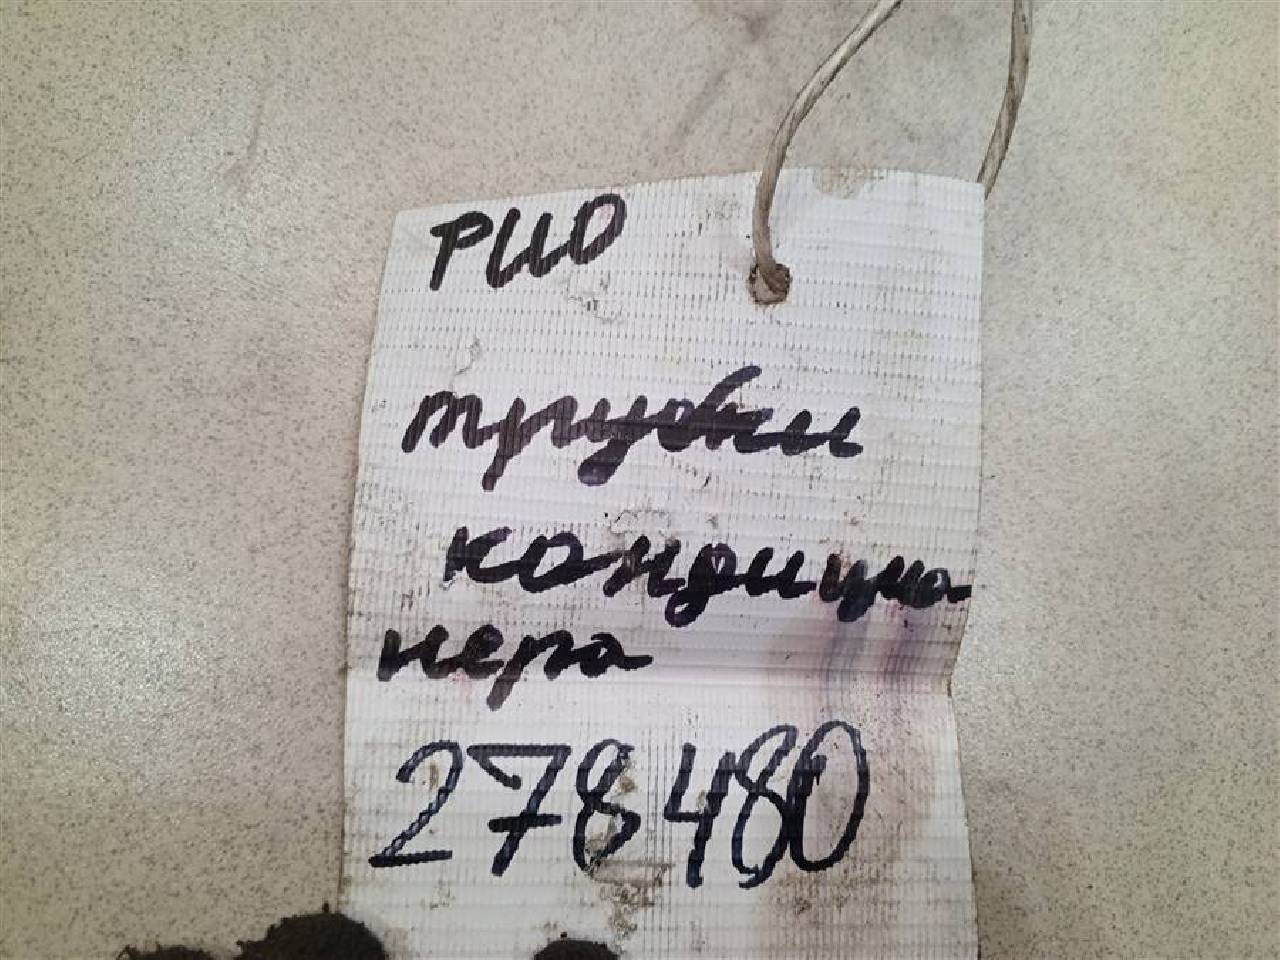 РИО
трубки
кондицио
нера
278480